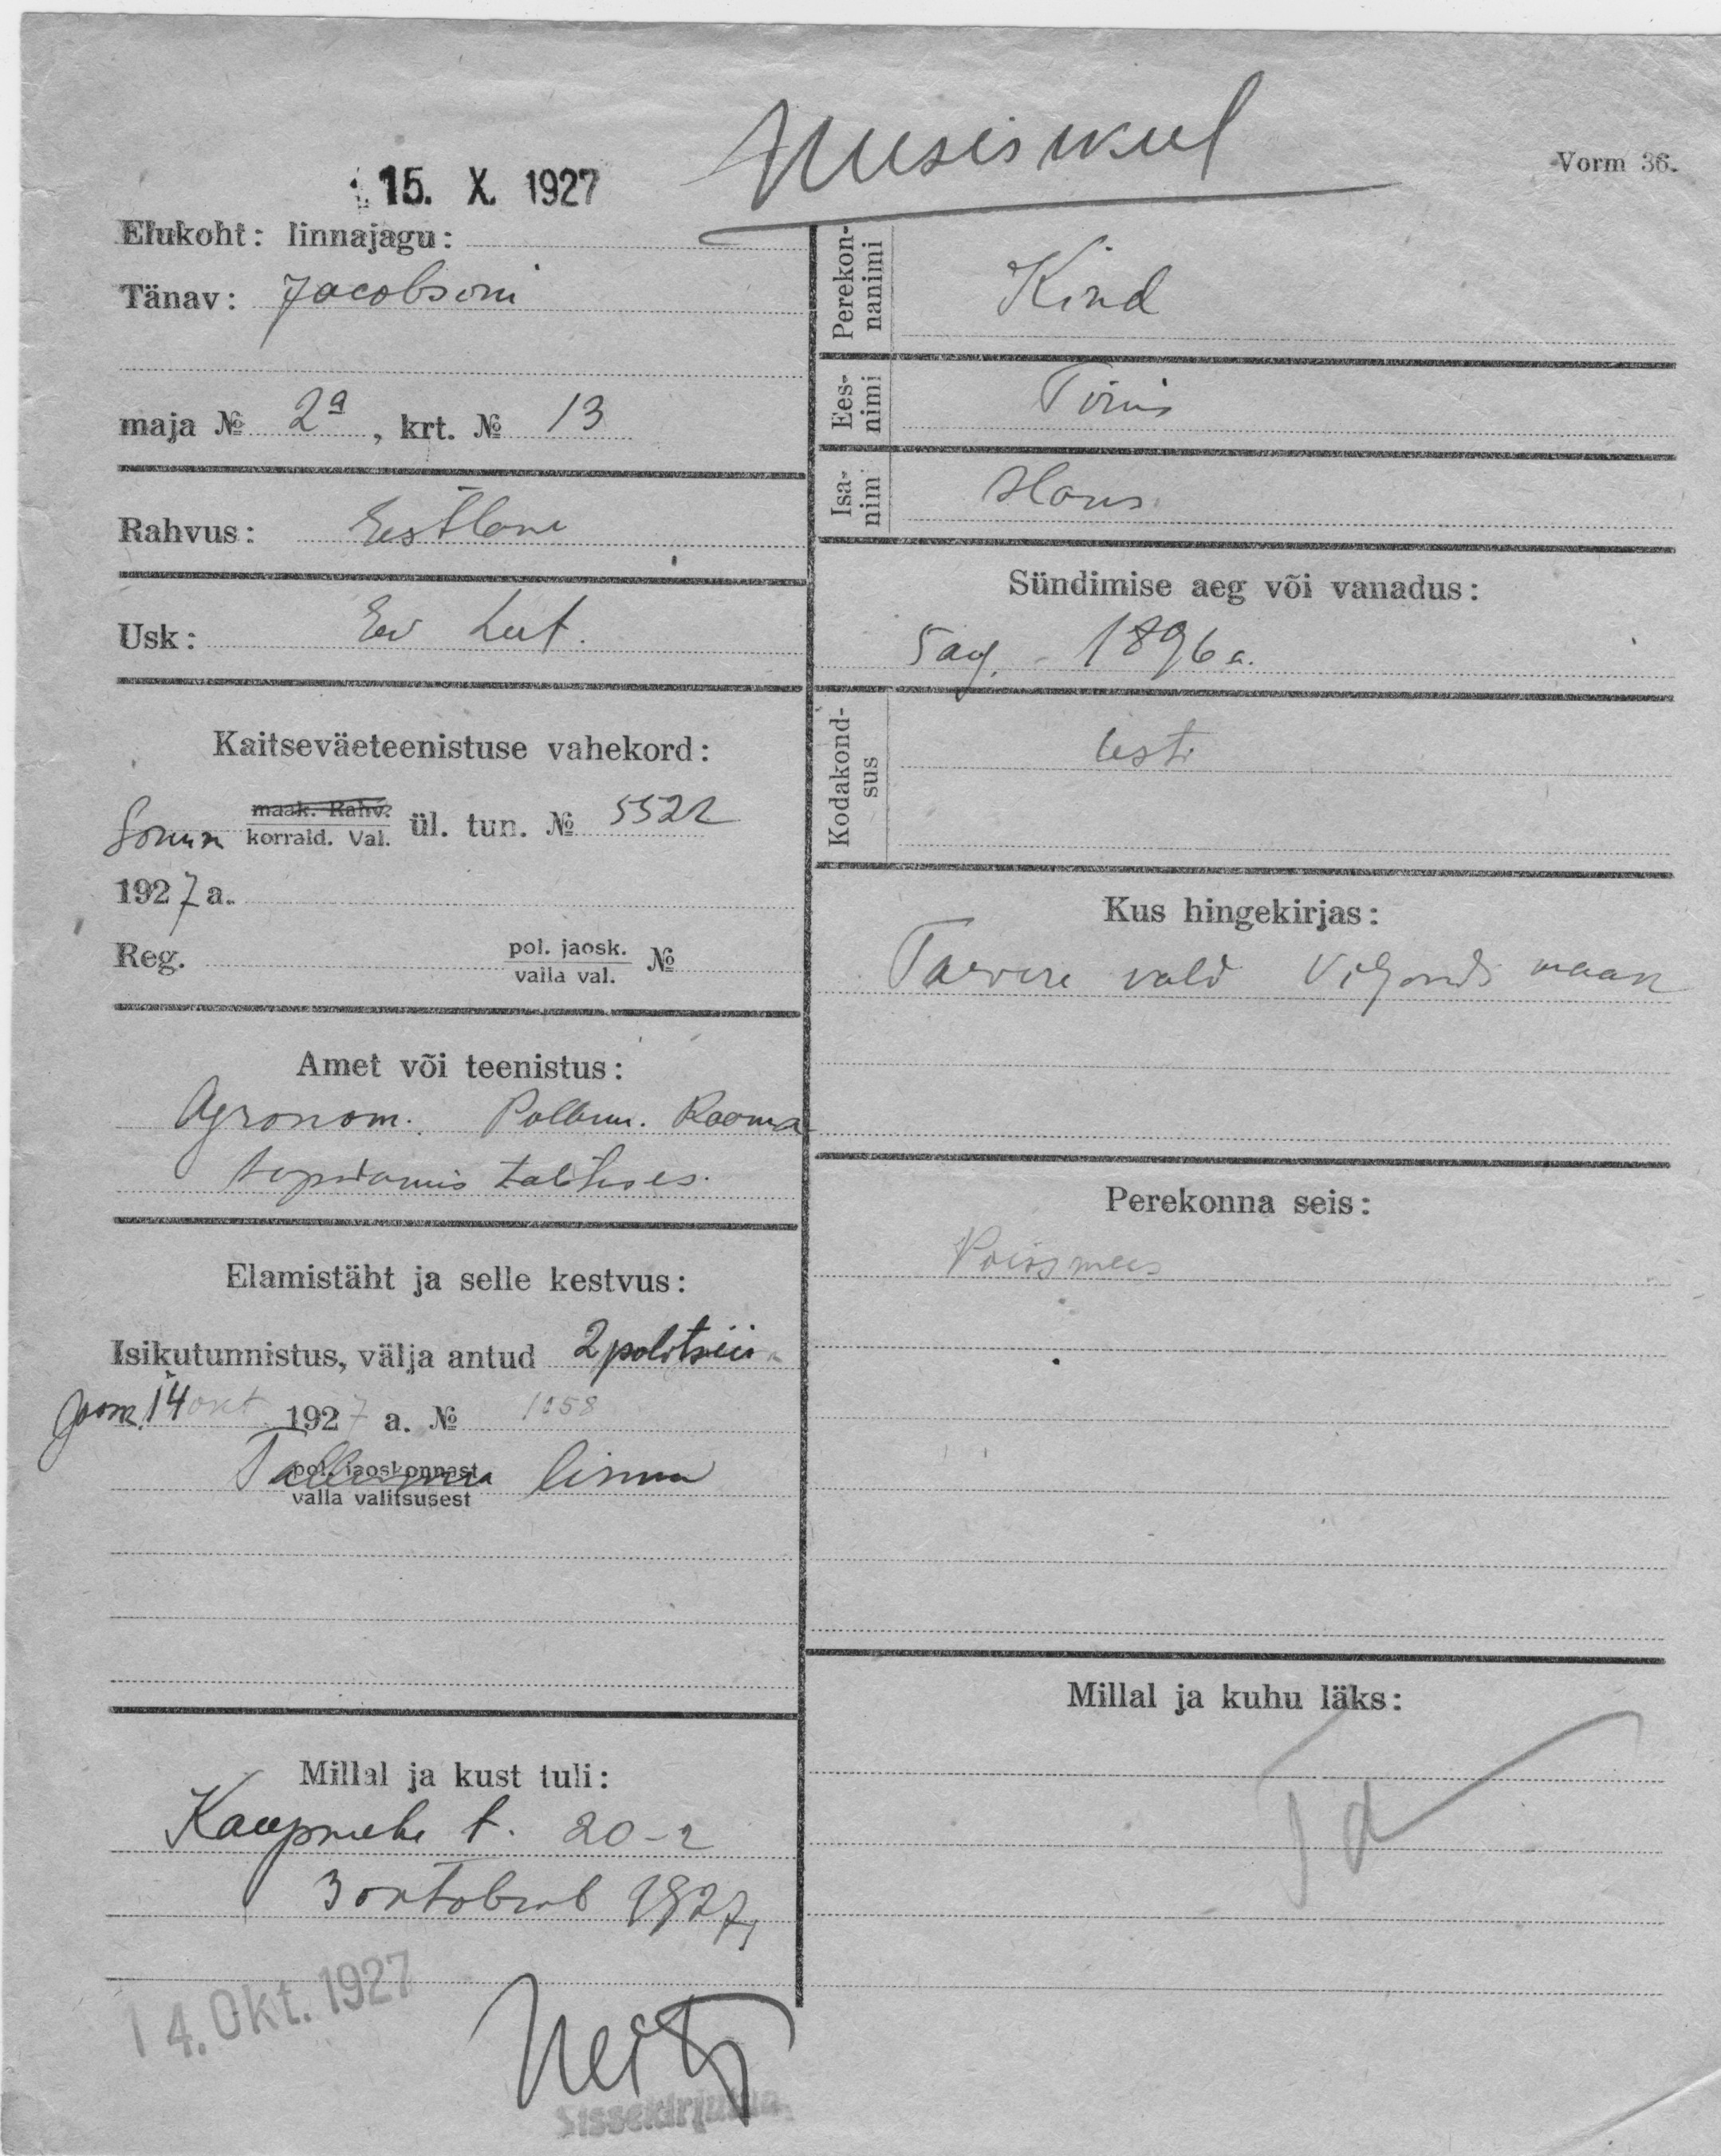 15. X. 1927
Vorm 36.
Elukoht: linnajagu:
Tänav: Jacobsoni
maja № 2a, krt. № 13
Rahvus: Eestlane
Usk: Ev Lut.
Kaitseväeteenistuse vahekord:
maak. Rahv.
korrald. Val. ül. tun. № 5522
1927 a.
Reg. pol. jaosk. №
valla val.
Amet või teenistus:
Agronom. Põllum. Raama
tupidamis talituses.
Elamistäht ja selle kestvus:
Isikutunnistus, välja antud 2 politsei
jaosk. 14 okt 1927 a. № 1058
pol. jaoskonnast
Tallinna linna
valla valitsusest
Millal ja kust tuli:
Kaupmehe t. 20-2
3 oktobril 1927
14. Okt. 1927
Sissekirjutaja
Perekon-
nanimi Kind
Ees-
nimi Tõnis
Isa-
nim Hans
Sündimise aeg või vanadus:
5 aug. 1896 a.
Kodakond-
sus Eesti
Kus hingekirjas:
Tarvere vald Viljandi maak
Perekonna seis:
Poissmees
Millal ja kuhu läks: